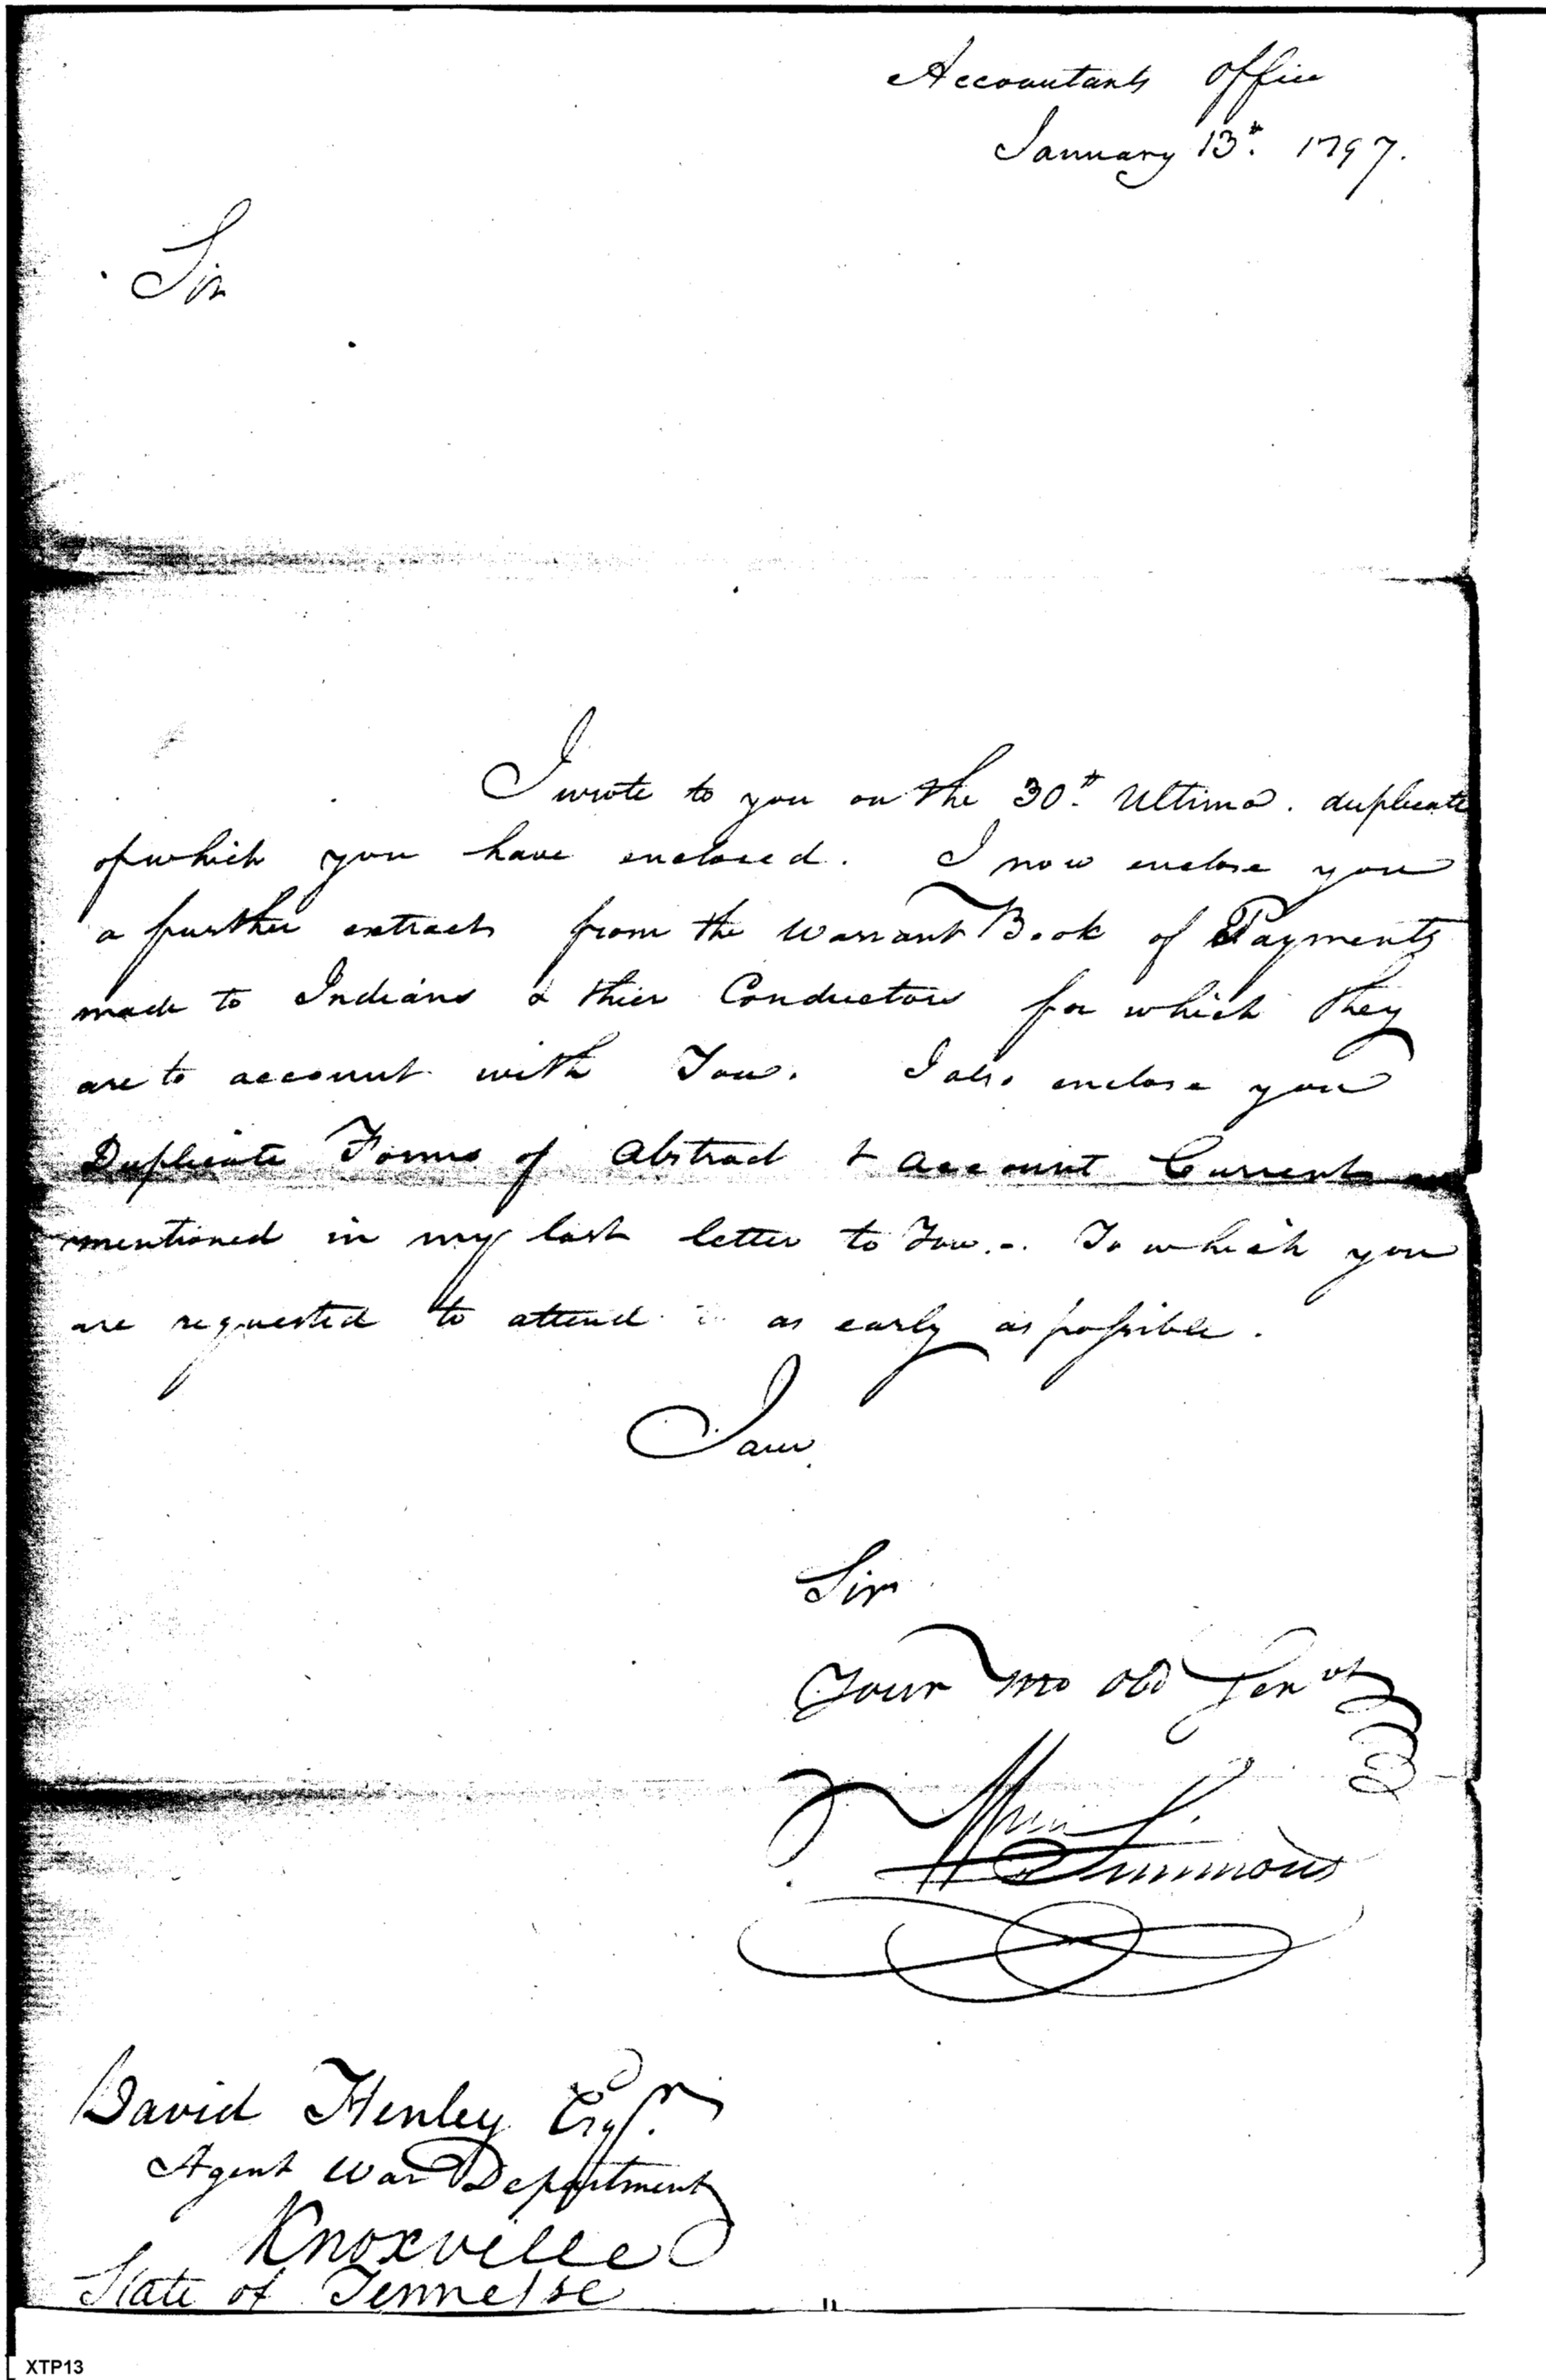 Accountants Office
January 13th. 1797.
Sir
I wrote to you on the 30th. Ultimo. duplicate
of which you have enclosed. I now enclose you
a further extract from the Warrant Book of Payments
made to Indians & thier Conductors for which they
are to account with You. I also enclose you
Duplicate Forms of Abstract & Account Current
mentioned in my last letter to You.-. To which you
are requested to attend as early as possible.
I am
Sir
Your Mo Obd Servt
Wm Simmons
David Henley Esqr.
Agent War Department
Knoxville
State of Tennessee
XTP13